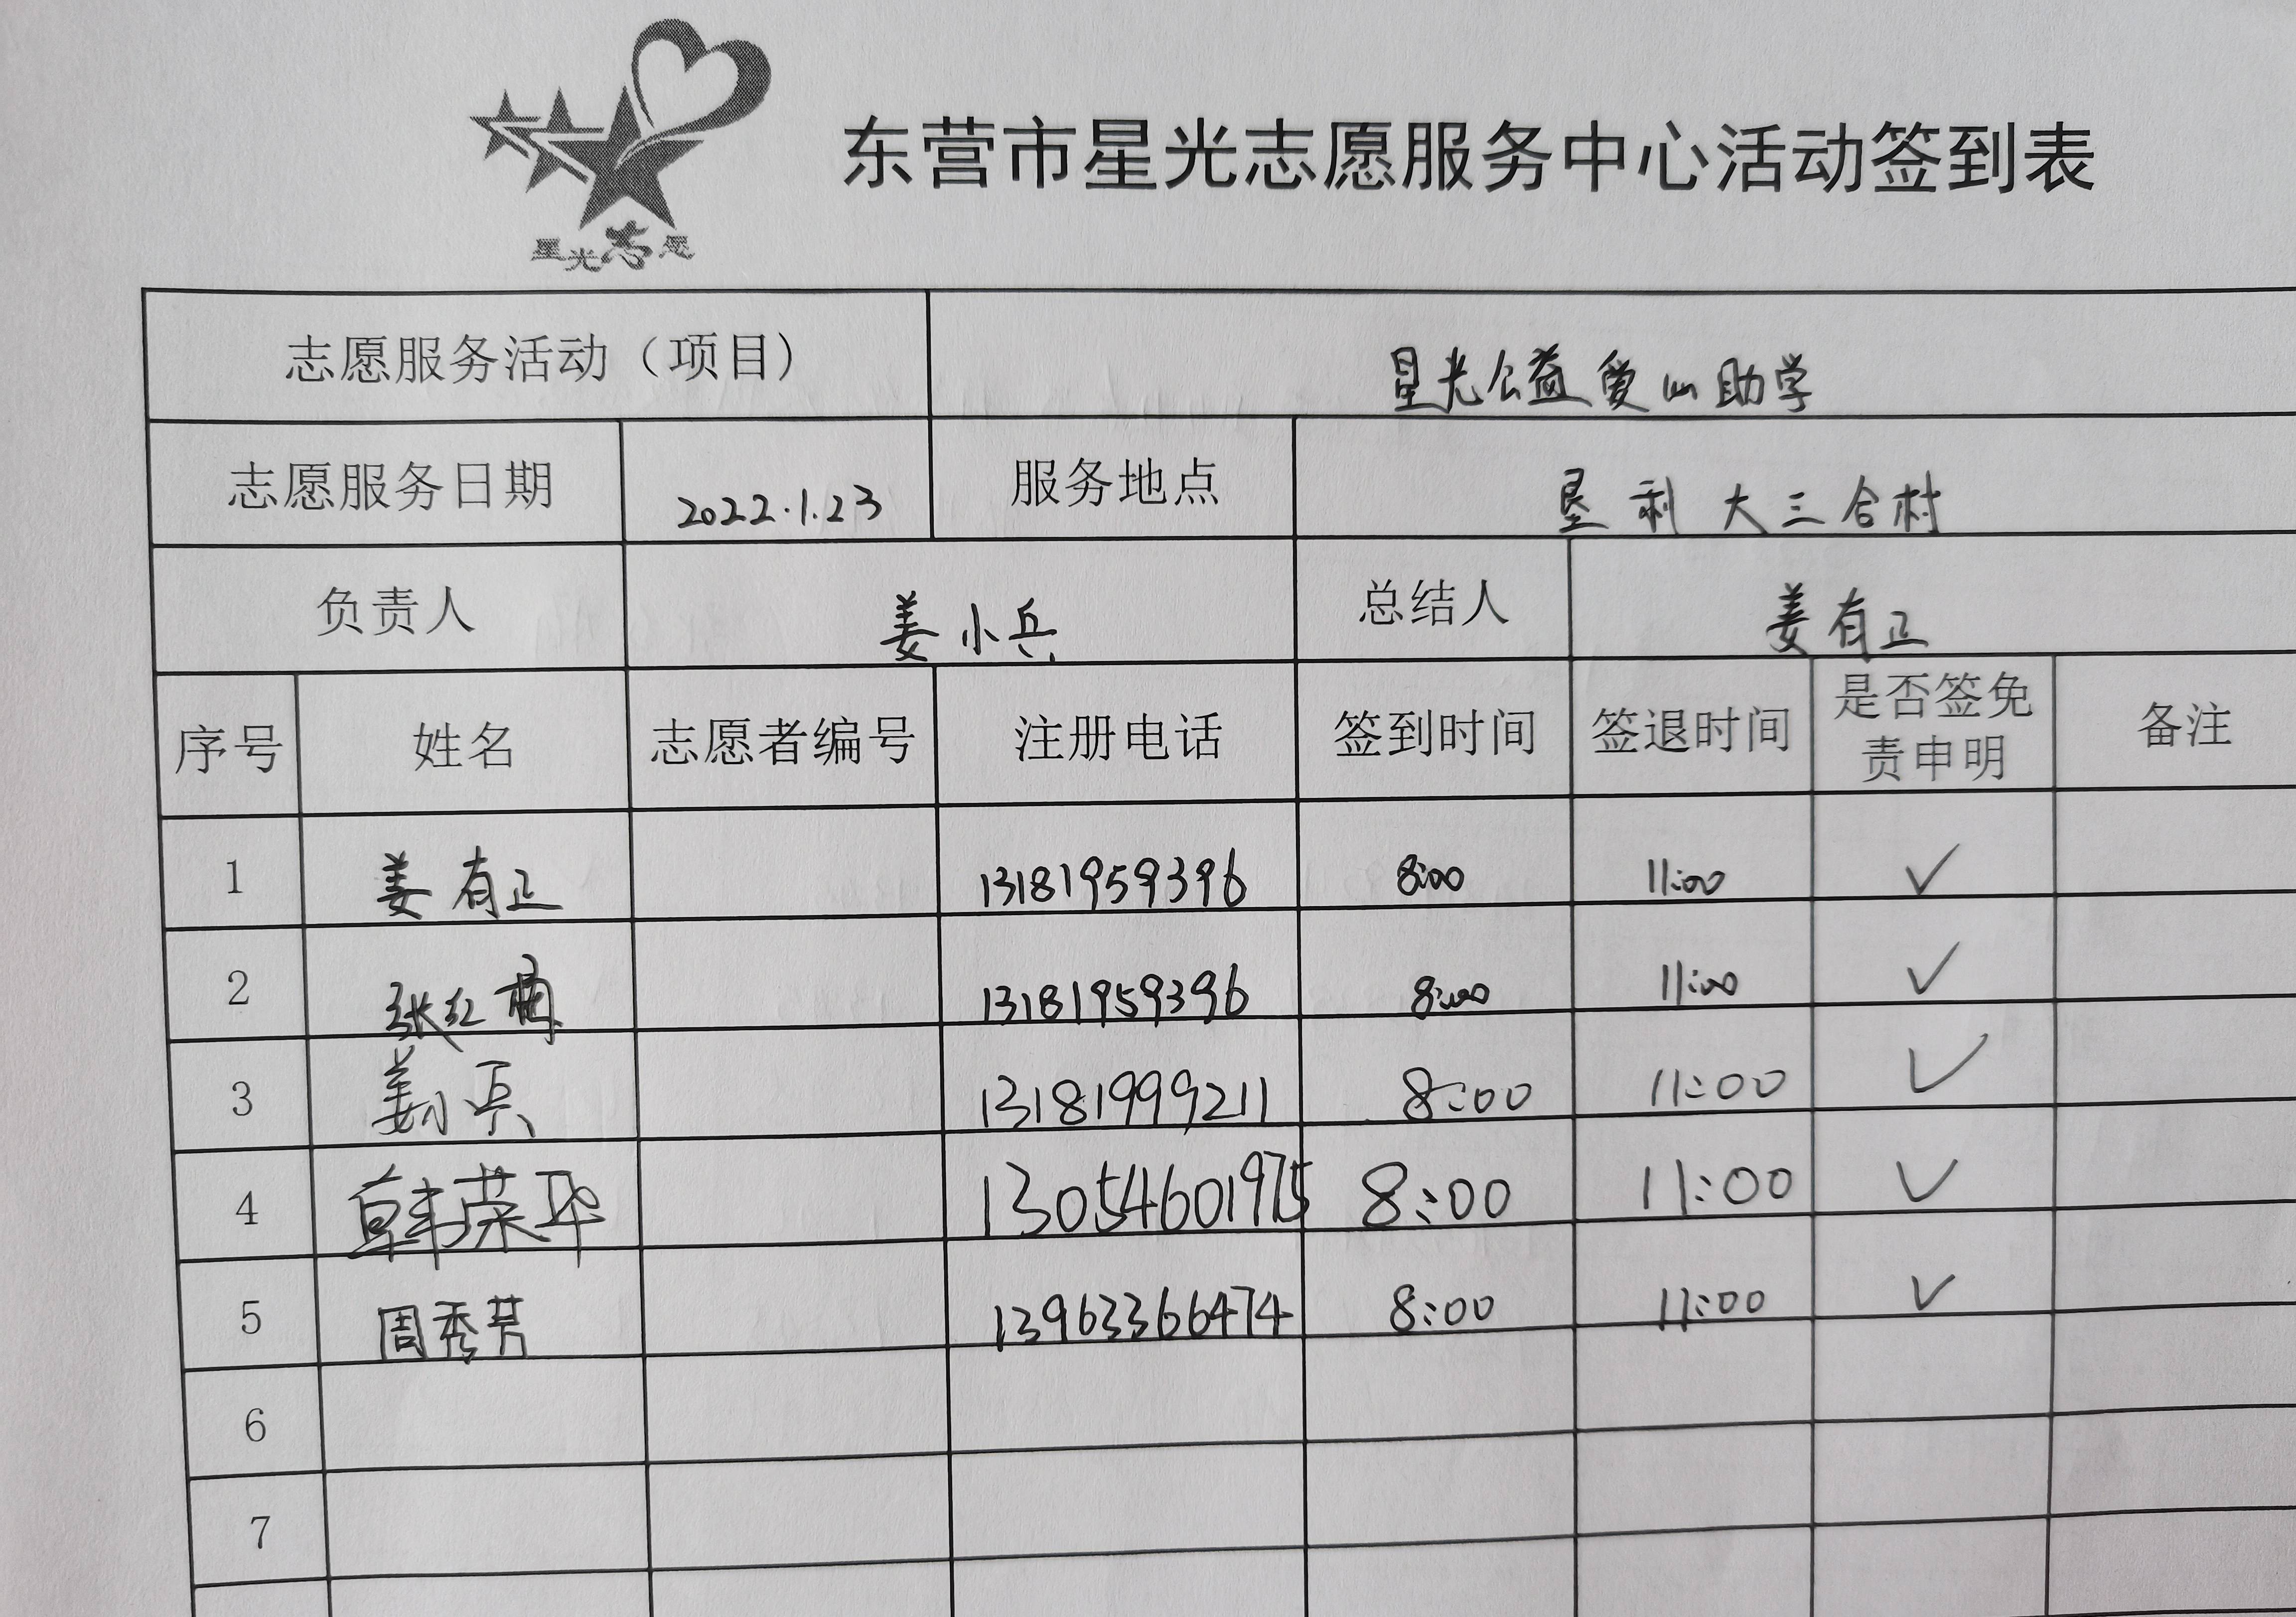 东营市星光志愿服务中心活动签到表
星光志愿
志愿服务活动（项目） 星光公益爱心助学
志愿服务日期 2022.1.23 服务地点 垦利大三合村
负责人 姜小兵 总结人 姜有正
序号 姓名 志愿者编号 注册电话 签到时间 签退时间 是否签免责申明 备注
1 姜有正 13181959396 8:00 11:00 ✓
2 张红梅 13181959396 8:00 11:00 ✓
3 姜小兵 13181999211 8:00 11:00 ✓
4 韩荣华 13054601975 8:00 11:00 ✓
5 周秀芳 13963366474 8:00 11:00 ✓
6
7